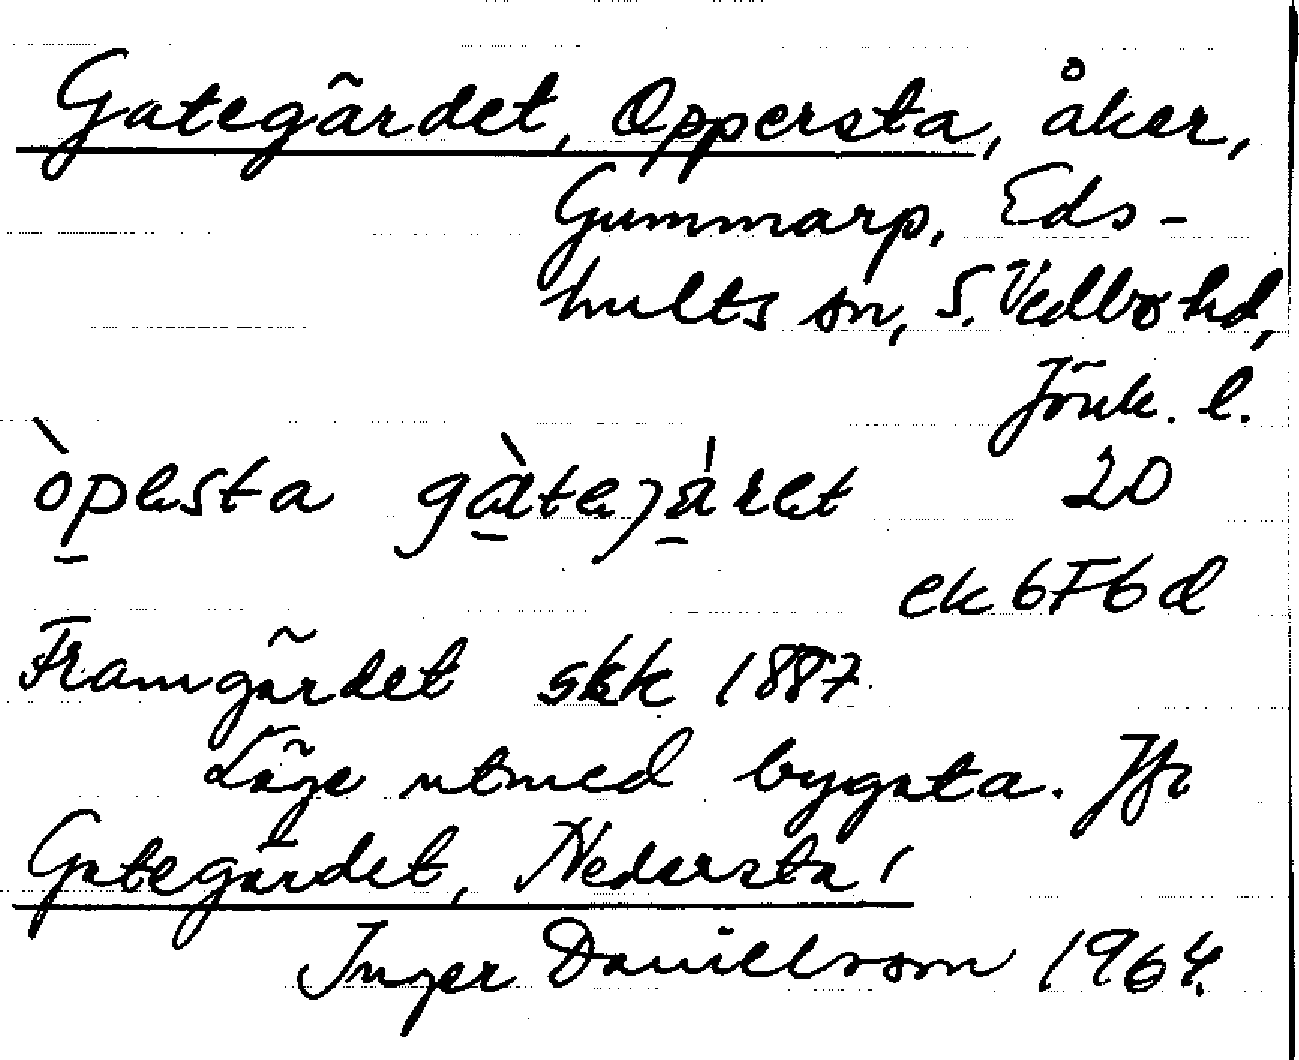 Gategärdet, Oppersta, åker,
Gummarp, Eds-
hults sn, S. Vedbo hd,
Jönk. l.
òplsta gàtejálet 20
ek 6F6d
Framgärdet skk 1887
Läge utmed bygata. Jfr
Gategärdet, Nedersta!
Inger Danielsson 1964.